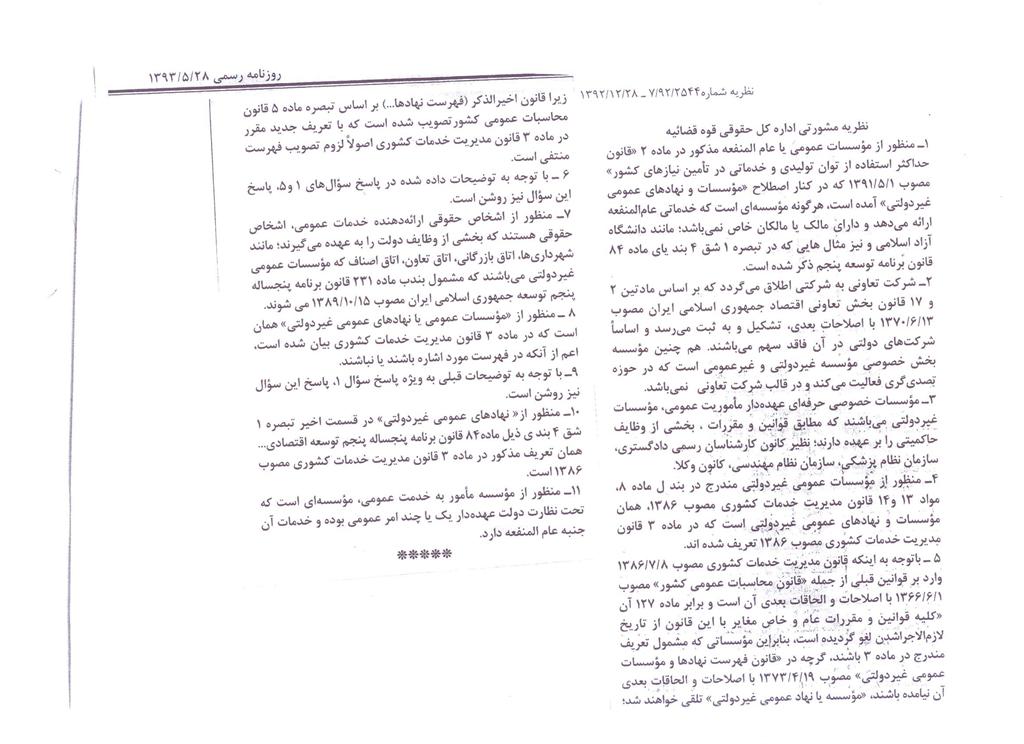 روزنامه رسمی ۱۳۹۳/۵/۲۸
نظریه شماره ۷/۹۲/۲۵۴۴ ـ ۱۳۹۲/۱۲/۲۸
نظریه مشورتی اداره کل حقوقی قوه قضائیه
۱ـ منظور از مؤسسات عمومی یا عام المنفعه مذکور در ماده ۲ «قانون
حداکثر استفاده از توان تولیدی و خدماتی در تأمین نیازهای کشور»
مصوب ۱۳۹۱/۵/۱ که در کنار اصطلاح «مؤسسات و نهادهای عمومی
غیردولتی» آمده است، هرگونه مؤسسه‌ای است که خدماتی عام‌المنفعه
ارائه می‌دهد و دارای مالک یا مالکان خاص نمی‌باشد؛ مانند دانشگاه
آزاد اسلامی و نیز مثال هایی که در تبصره ۱ شق ۴ بند یای ماده ۸۴
قانون برنامه توسعه پنجم ذکر شده است.
۲ـ شرکت تعاونی به شرکتی اطلاق می‌گردد که بر اساس مادتین ۲
و ۱۷ قانون بخش تعاونی اقتصاد جمهوری اسلامی ایران مصوب
۱۳۷۰/۶/۱۳ با اصلاحات بعدی، تشکیل و به ثبت می‌رسد و اساساً
شرکت‌های دولتی در آن فاقد سهم می‌باشند. هم چنین مؤسسه
بخش خصوصی مؤسسه غیردولتی و غیرعمومی است که در حوزه
تصدی‌گری فعالیت می‌کند و در قالب شرکت تعاونی نمی‌باشد.
۳ـ مؤسسات خصوصی حرفه‌ای عهده‌دار مأموریت عمومی، مؤسسات
غیردولتی می‌باشند که مطابق قوانین و مقررات ، بخشی از وظایف
حاکمیتی را بر عهده دارند؛ نظیر کانون کارشناسان رسمی دادگستری،
سازمان نظام پزشکی، سازمان نظام مهندسی، کانون وکلا.
۴ـ منظور از مؤسسات عمومی غیردولتی مندرج در بند ل ماده ۸،
مواد ۱۳ و۱۴ قانون مدیریت خدمات کشوری مصوب ۱۳۸۶، همان
مؤسسات و نهادهای عمومی غیردولتی است که در ماده ۳ قانون
مدیریت خدمات کشوری مصوب ۱۳۸۶ تعریف شده اند.
۵ ـ باتوجه به اینکه قانون مدیریت خدمات کشوری مصوب ۱۳۸۶/۷/۸
وارد بر قوانین قبلی از جمله «قانون محاسبات عمومی کشور» مصوب
۱۳۶۶/۶/۱ با اصلاحات و الحاقات بعدی آن است و برابر ماده ۱۲۷ آن
«کلیه قوانین و مقررات عام و خاص مغایر با این قانون از تاریخ
لازم‌الاجراشدن لغو گردیده است، بنابراین مؤسساتی که مشمول تعریف
مندرج در ماده ۳ باشند، گرچه در «قانون فهرست نهادها و مؤسسات
عمومی غیردولتی» مصوب ۱۳۷۳/۴/۱۹ با اصلاحات و الحاقات بعدی
آن نیامده باشند، «مؤسسه یا نهاد عمومی غیردولتی» تلقی خواهند شد؛
زیرا قانون اخیرالذکر (فهرست نهادها...) بر اساس تبصره ماده ۵ قانون
محاسبات عمومی کشورتصویب شده است که با تعریف جدید مقرر
در ماده ۳ قانون مدیریت خدمات کشوری اصولاً لزوم تصویب فهرست
منتفی است.
۶ ـ با توجه به توضیحات داده شده در پاسخ سؤال‌های ۱ و۵، پاسخ
این سؤال نیز روشن است.
۷ـ منظور از اشخاص حقوقی ارائه‌دهنده خدمات عمومی، اشخاص
حقوقی هستند که بخشی از وظایف دولت را به عهده می‌گیرند؛ مانند
شهرداری‌ها، اتاق بازرگانی، اتاق تعاون، اتاق اصناف که مؤسسات عمومی
غیردولتی می‌باشند که مشمول بندب ماده ۲۳۱ قانون برنامه پنجساله
پنجم توسعه جمهوری اسلامی ایران مصوب ۱۳۸۹/۱۰/۱۵ می شوند.
۸ ـ منظور از «مؤسسات عمومی یا نهادهای عمومی غیردولتی» همان
است که در ماده ۳ قانون مدیریت خدمات کشوری بیان شده است،
اعم از آنکه در فهرست مورد اشاره باشند یا نباشند.
۹ـ با توجه به توضیحات قبلی به ویژه پاسخ سؤال ۱، پاسخ این سؤال
نیز روشن است.
۱۰ـ منظور از« نهادهای عمومی غیردولتی» در قسمت اخیر تبصره ۱
شق ۴ بندی ذیل ماده۸۴ قانون برنامه پنجساله پنجم توسعه اقتصادی...
همان تعریف مذکور در ماده ۳ قانون مدیریت خدمات کشوری مصوب
۱۳۸۶ است.
۱۱ـ منظور از مؤسسه مأمور به خدمت عمومی، مؤسسه‌ای است که
تحت نظارت دولت عهده‌دار یک یا چند امر عمومی بوده و خدمات آن
جنبه عام المنفعه دارد.
*****